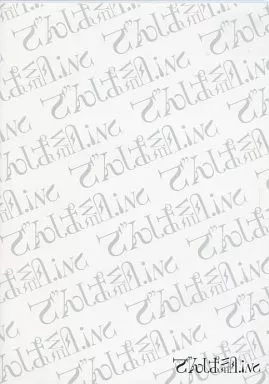 でんぱ組.inc でんぱ組.inc
でんぱ組.inc でんぱ組.inc
でんぱ組.inc でんぱ組.inc
でんぱ組.inc でんぱ組.inc
でんぱ組.inc でんぱ組.inc
でんぱ組.inc でんぱ組.inc
でんぱ組.inc でんぱ組.inc
でんぱ組.inc